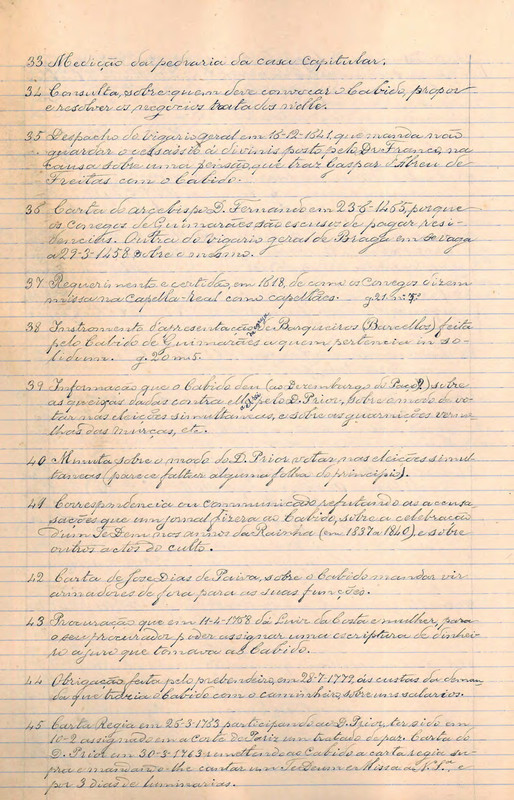 33 Medição da pedraria da casa capitular.
34 Consulta, sobre quem deve convocar o Cabido, propor
e resolver os negocios tratados nelle.
35 Despacho do vigario geral em 16-12-1541, que manda não
guardar o posto pelo Dr. Franco, na
causa sobre uma pensão, que traz Gaspar d'Abreu de
Freitas com o Cabido.
36 Carta do arcebispo D. Fernando em 23-6-1455, porque
os conegos de Guimarães são escusos de pagar
Outra do vigario geral de Braga em Se vaga
a 29-3-1458 sobre o mesmo.
37 Requerimento e certidão, em 1818, de como os conegos dizem
missa na capella real como capellães. g. 21 m. 5
38 Instromento d'apresentação de Barqueiros (Barcellos) feita
pelo Cabido de Guimarães a quem pertencia in so-
lidum. g. 20 m 5.
39 Informação que o Cabido deu (ao Desembargo do Paço?) sobre
as queixas dadas contra elle pelo D. Prior, sobre o modo de vo-
tar nas eleições simultaneas, e sobre as guarnições verme-
lhas das murças, etc.
40 Minuta sobre o modo do D. Prior votar nas eleições simul-
taneas (parece faltar alguma folha do principio).
41 Correspondencia ou communicado refutando as accu-
sações que um jornal fizera ao Cabido, sobre a celebração
d'um Te Deum nos annos da Rainha (em 1837 a 1840), e sobre
outros actos do culto.
42 Carta de Jose Dias de Paiva, sobre o Cabido mandar vir
armadores de fora para as suas funções.
43 Procuração que em 11-4-1758 dá Luiz da Costa e mulher, para
o seu procurador poder assignar uma escriptura de dinhei-
ro a juro que tomava ao Cabido.
44 Obrigação feita pelo prebendeiro, em 28-7-1772, ás custas da deman-
da que trazia o Cabido com o caminheiro, sobre uns salarios.
45 Carta Regia em 25-3-1763 participando ao D. Prior, ter sido em
10-2 assignado em a corte de Pariz um tratado de paz. Carta do
D. Prior em 30-3-1763 remettendo ao Cabido a carta regia su-
pra e mandando-lhe cantar um Te Deum e Missa a N. Sra. e
por 3 dias de luminarias.